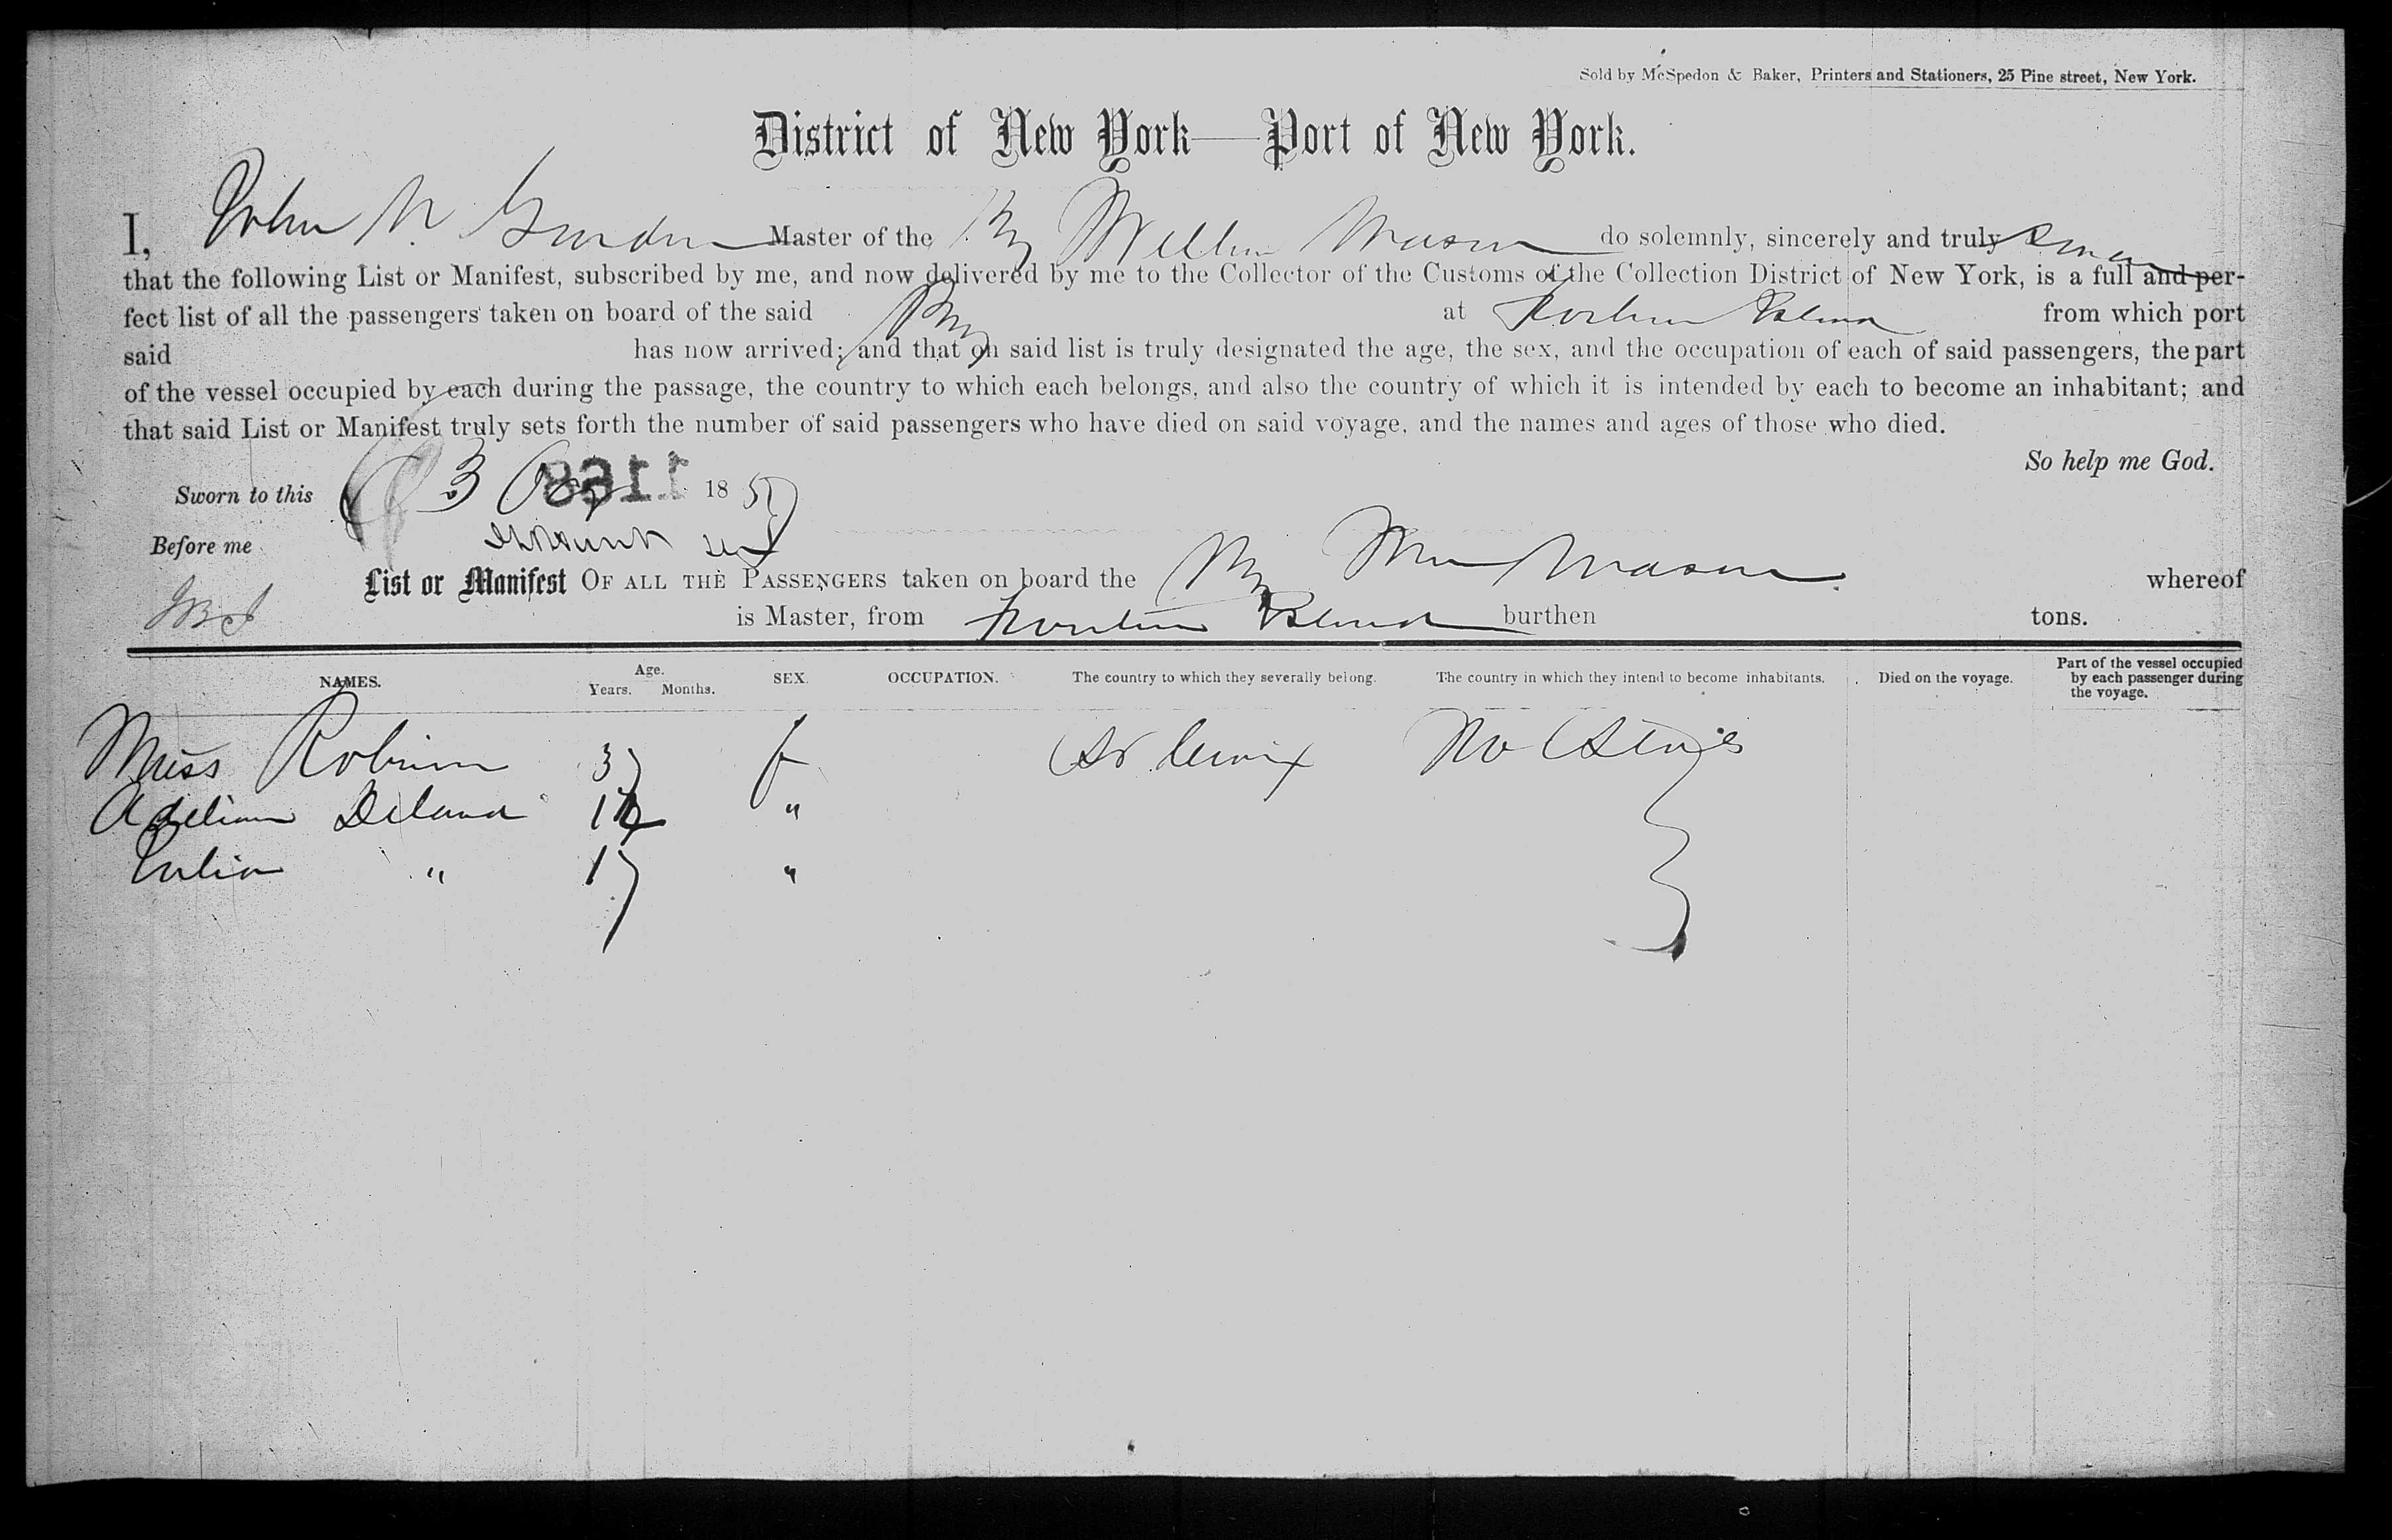 Sold by McSpedon & Baker, Printers and Stationers, 25 Pine street, New York.
District of New York—Port of New York.
I, John N. Master of the William Mason do solemnly, sincerely and truly
that the following List or Manifest, subscribed by me, and now delivered by me to the Collector of the Customs of the Collection District of New York, is a full and per-
fect list of all the passengers taken on board of the said at from which port
said has now arrived; and that on said list is truly designated the age, the sex, and the occupation of each of said passengers, the part
of the vessel occupied by each during the passage, the country to which each belongs, and also the country of which it is intended by each to become an inhabitant; and
that said List or Manifest truly sets forth the number of said passengers who have died on said voyage, and the names and ages of those who died.
So help me God.
Sworn to this 3 1168 185
Before me
List or Manifest OF ALL THE PASSENGERS taken on board the Wm Mason whereof
is Master, from Island burthen tons.
NAMES. Age. Years. Months. SEX. OCCUPATION. The country to which they severally belong. The country in which they intend to become inhabitants. Died on the voyage. Part of the vessel occupied by each passenger during the voyage.
Miss f St Croix
Deland "
Julia " 17 "